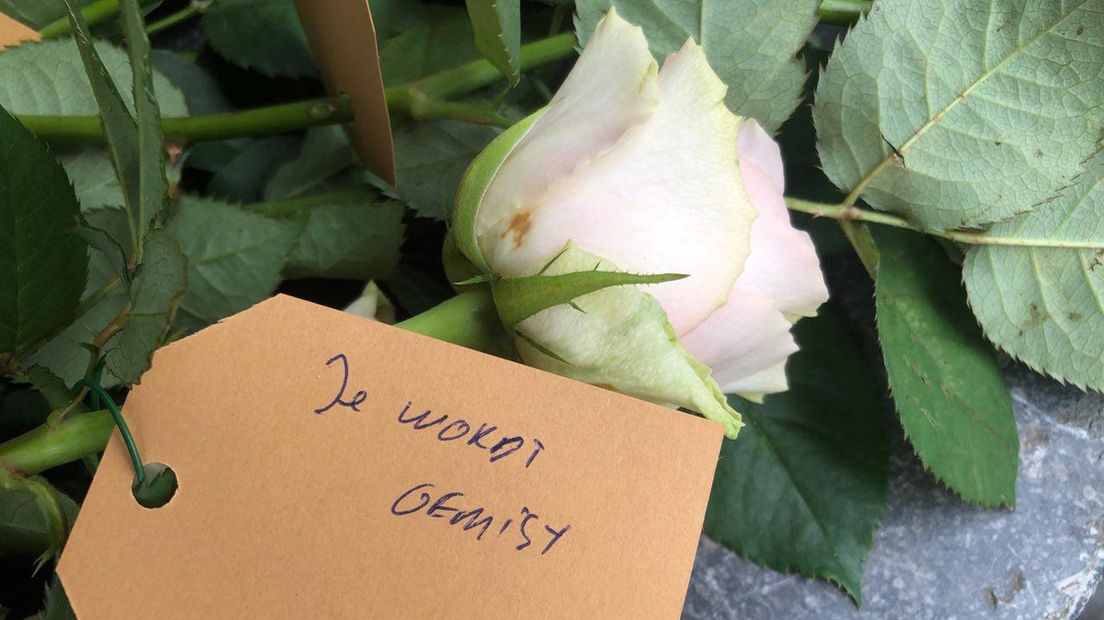 Je WORDT
GEMIST